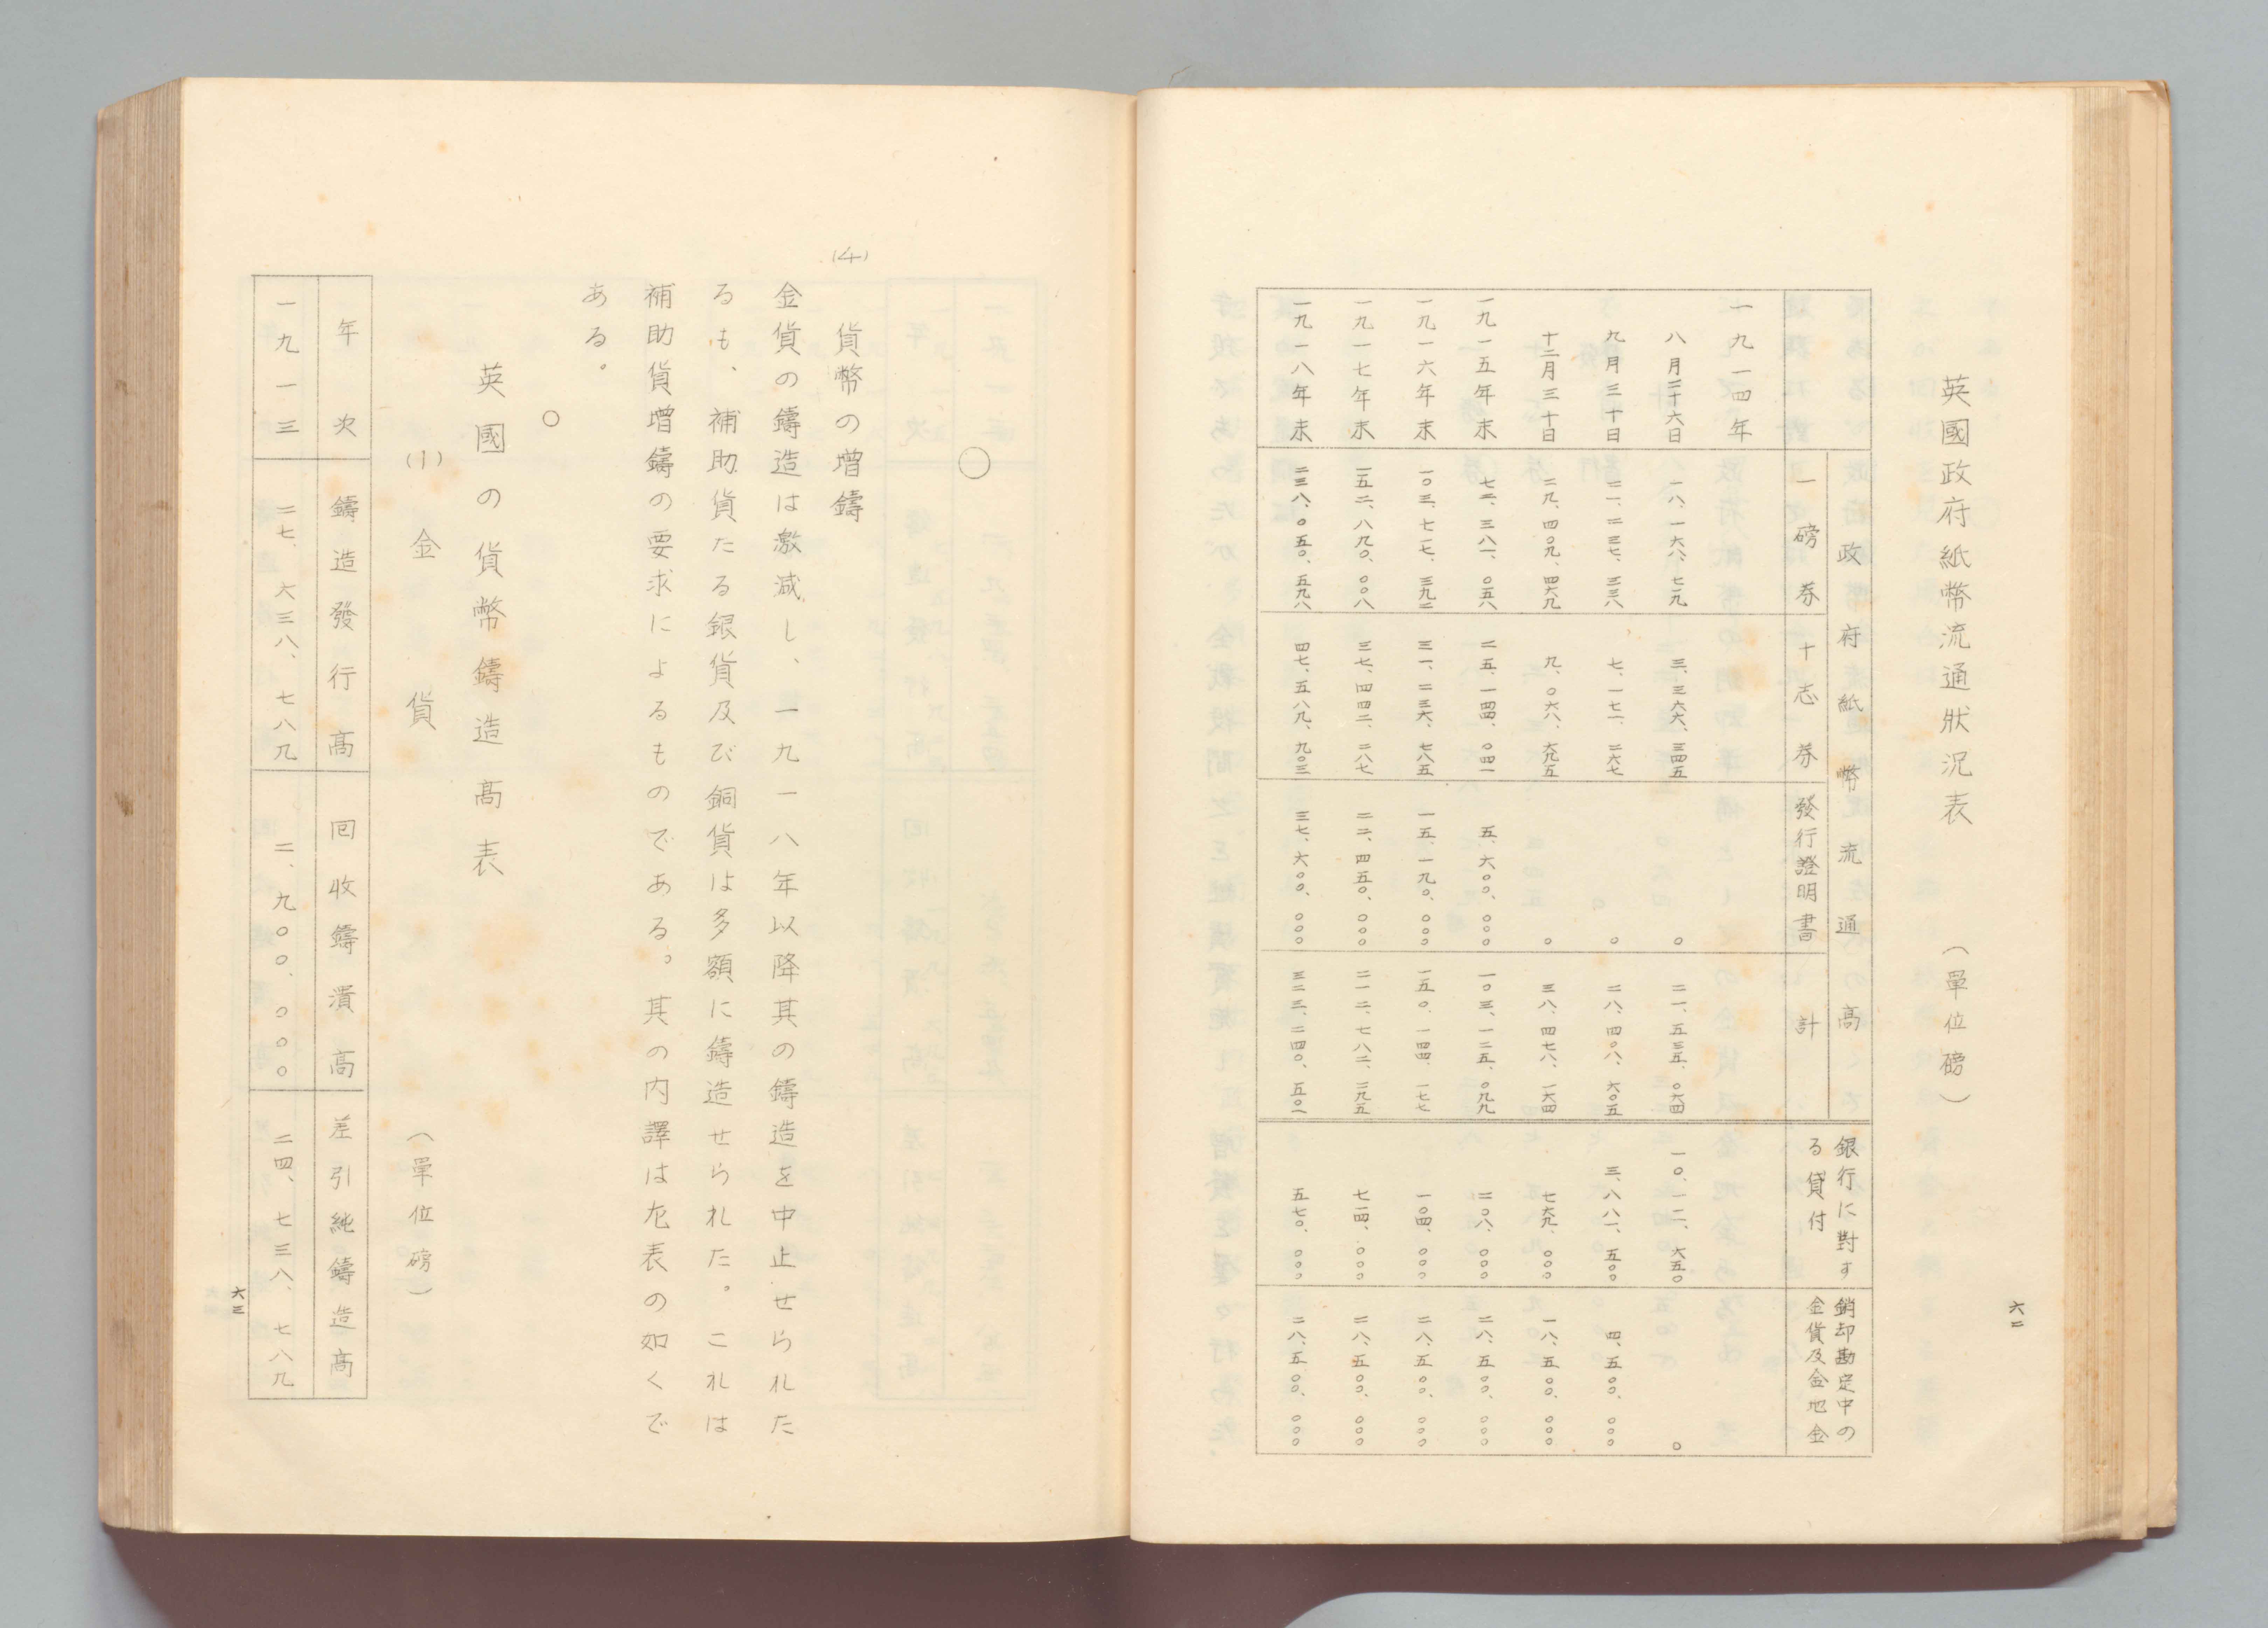 六二
英國政府紙幣流通狀況表 (單位磅)
政府紙幣流通高 銀行に對す 銷却勘定中の
一磅券 十志券 發行證明書 計 る貸付 金貨及金地金
一九一四年
八月二十六日 一八、一六八、七二九 三、三六六、三四五 〇 二一、五三五、〇六四 一〇、一二、六五〇 〇
九月三十日 二一、二三七、三三八 七、一七一、二六七 〇 二八、四〇八、六〇五 三、八八一、五〇〇 四、五〇〇、〇〇〇
十二月三十日 二九、四〇九、四六九 九、〇六八、六九五 〇 三八、四七八、一六四 七六九、〇〇〇 一八、五〇〇、〇〇〇
一九一五年末 七二、三八一、〇五八 二五、一四四、〇四一 五、六〇〇、〇〇〇 一〇三、一二五、〇九九 二〇八、〇〇〇 二八、五〇〇、〇〇〇
一九一六年末 一〇三、七一七、三九二 三一、二三六、七八五 一五、一九〇、〇〇〇 一五〇、一四四、一七七 一〇四、〇〇〇 二八、五〇〇、〇〇〇
一九一七年末 一五二、八九〇、〇〇八 三七、四四二、二八七 二二、四五〇、〇〇〇 二一二、七八二、二九五 七一四、〇〇〇 二八、五〇〇、〇〇〇
一九一八年末 二三八、〇五〇、五九八 四七、五八九、九〇三 三七、六〇〇、〇〇〇 三二三、二四〇、五〇一 五七〇、〇〇〇 二八、五〇〇、〇〇〇
○
(4) 貨幣の増鑄
金貨の鑄造は激減し、一九一八年以降其の鑄造を中止せられた
るも、補助貨たる銀貨及び銅貨は多額に鑄造せられた。これは
補助貨増鑄の要求によるものである。其の内譯は左表の如くで
ある。
○
英國の貨幣鑄造高表
(1) 金貨 (單位磅)
年次 鑄造發行高 回收鑄潰高 差引純鑄造高
一九一三 二七、六三八、七八九 二、九〇〇、〇〇〇 二四、七三八、七八九
六三